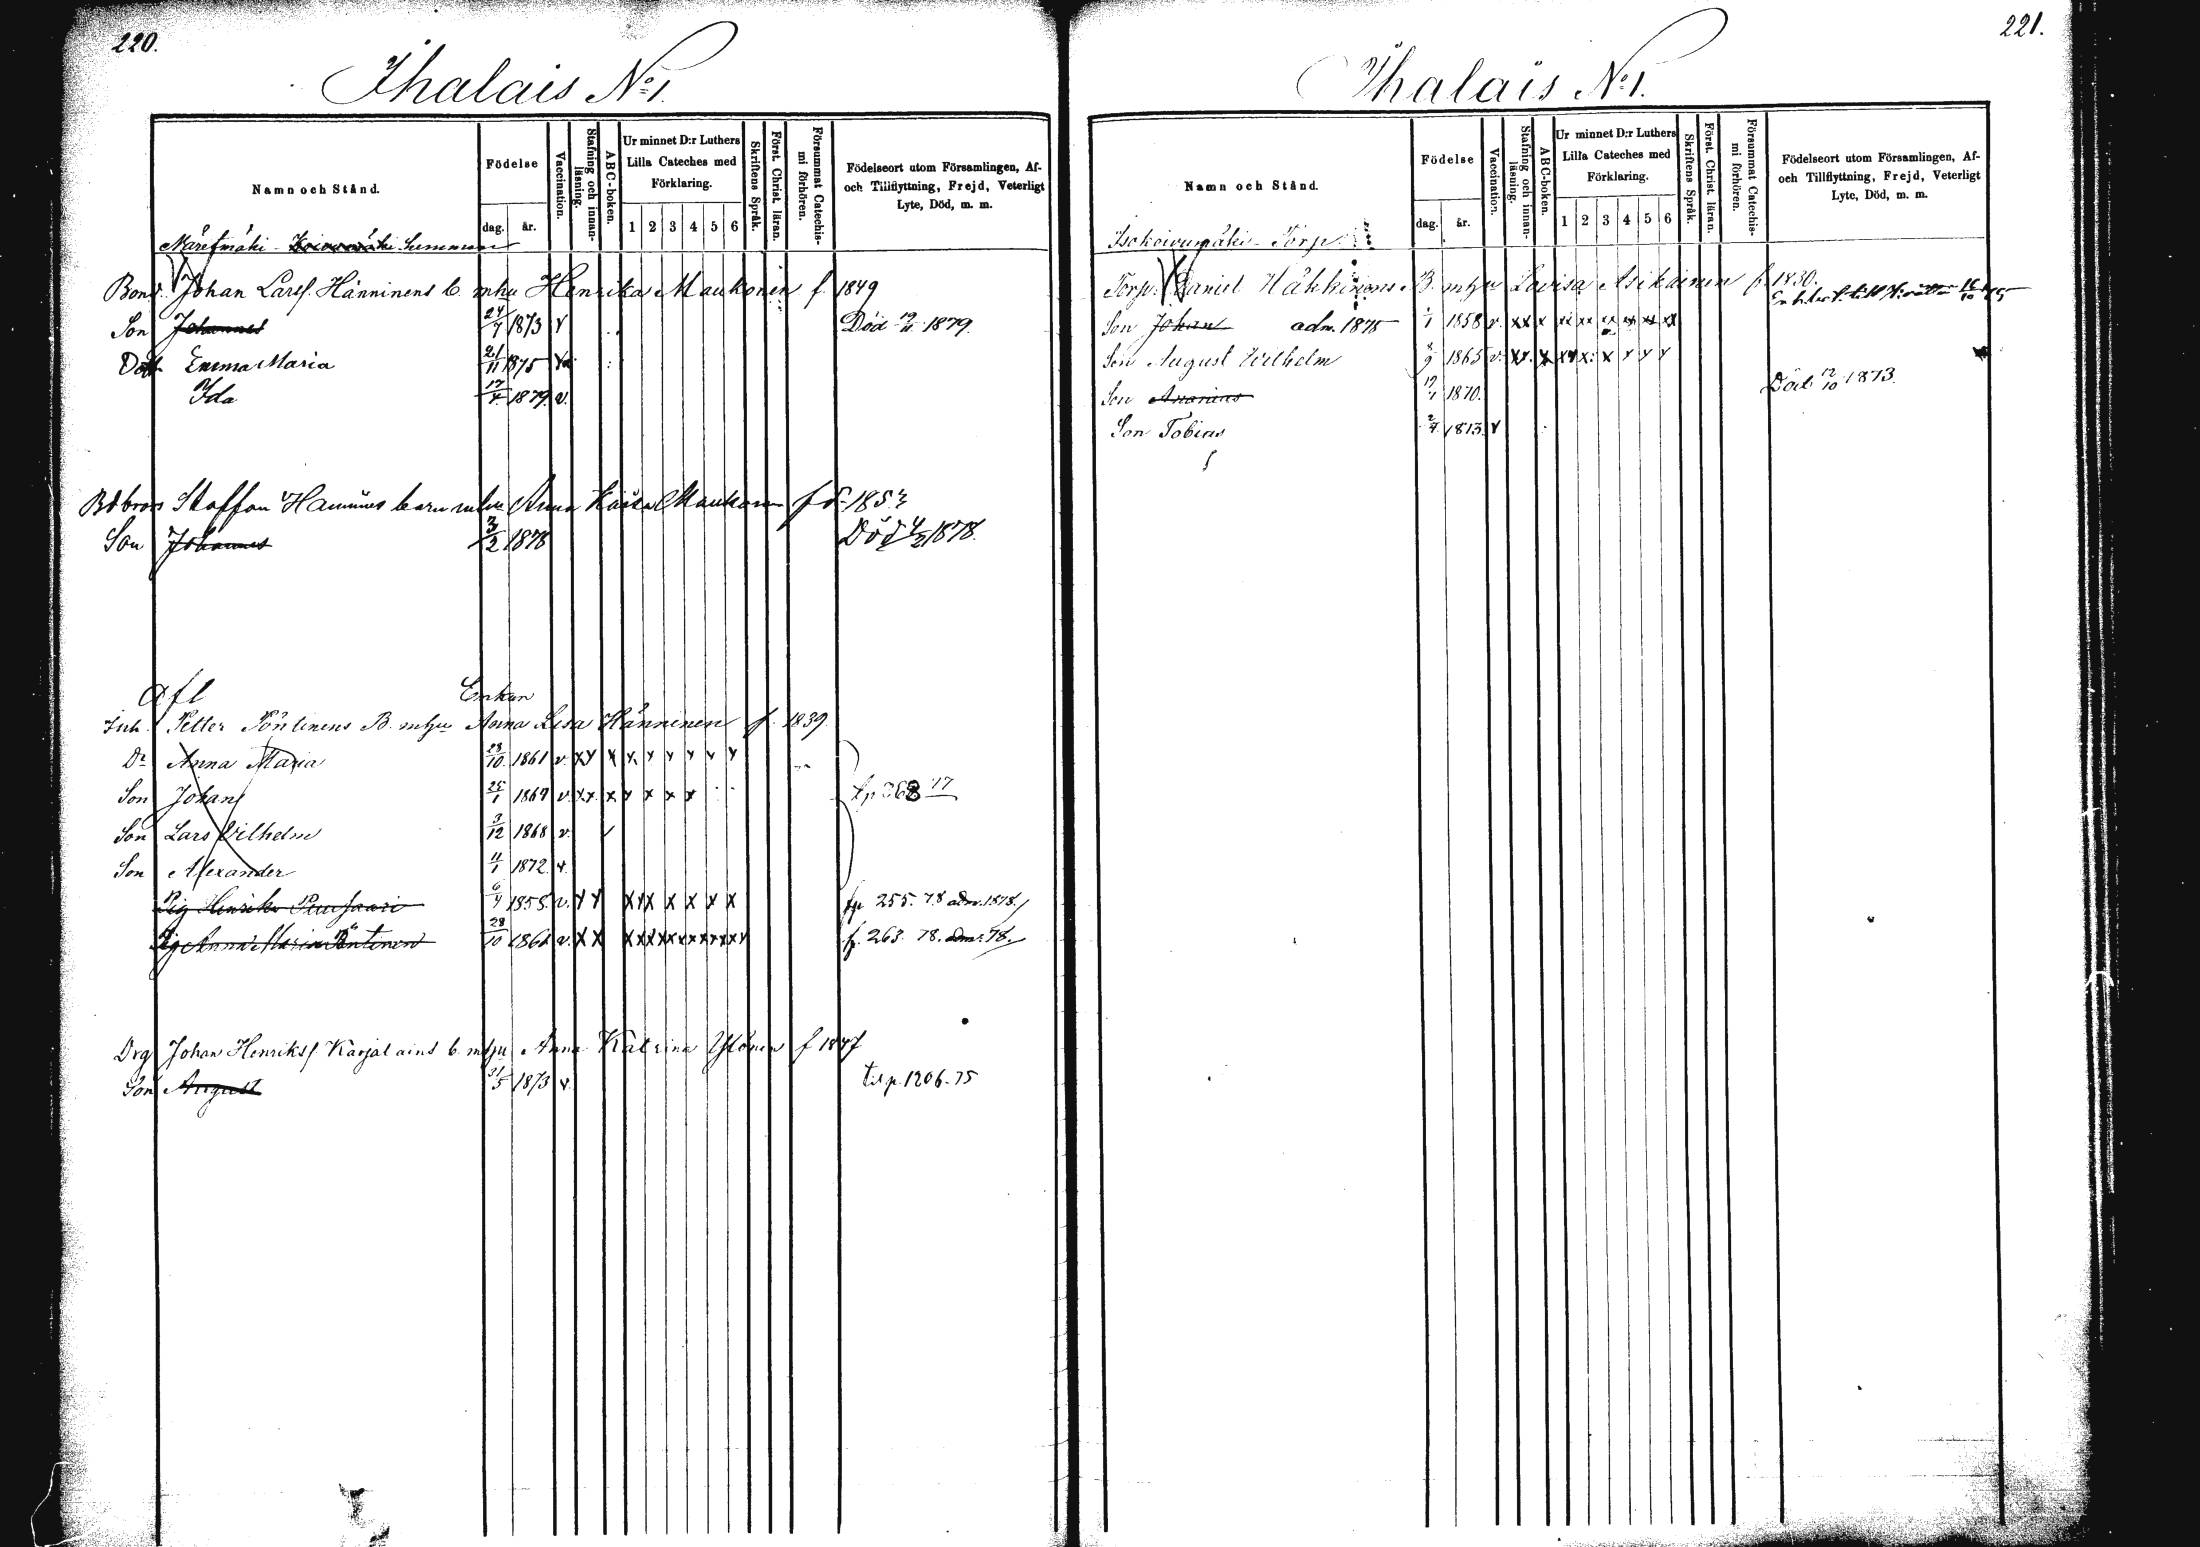 220.
Ihalais No 1.
Namn och Stånd.
Födelse
dag.
år.
Vaccination.
Stafning och innanläsning.
ABC-boken.
Ur minnet D:r Luthers Lilla Cateches med Förklaring.
1 2 3 4 5 6
Skriftens Språk.
Först. Christ. läran.
Försummat Catechismi förhören.
Födelseort utom Församlingen, Af- och Tillflyttning, Frejd, Veterligt Lyte, Död, m. m.
Bond. Johan Larsf. Hänninens b. mhu Henrika Maukonen f 1849
Son Johannes 24/7 1873 v Död 1879.
Dott Emma Maria 21/11 1875
Ida 17/4 1879 v.
Staffan Anna Kaisa Maukonen
Son Johannes 3/2 1878 Död 4/2 1878.
Afl Enkan
Inh. Petter Pöntinens B. mhu Anna Lisa Hänninen f. 1839
Dr Anna Maria 28/10 1861 v. x x x x x x x x x
Son Johan 25/1 1864 v. x x x x x x x
Son Lars Vilhelm 3/12 1868 v.
Son Alexander 4/1 1872 v.
Pig Henrika 6/4 1858. v. x x x x x x x x x fp 255. 78 adm. 1878.
Pig Anna Maria Pöntinen 28/10 1861 v. x x f. 263. 78. adm. 78.
Drg Johan Henriksf. Karjalains b. mhu Anna Katrina Ylönen f 1847
Son August 31/5 1873 v. til p. 1206. 75
221.
Ihalais No 1.
Namn och Stånd.
Födelse
dag.
år.
Vaccination.
Stafning och innanläsning.
ABC-boken.
Ur minnet D:r Luthers Lilla Cateches med Förklaring.
1 2 3 4 5 6
Skriftens Språk.
Först. Christ. läran.
Försummat Catechismi förhören.
Födelseort utom Församlingen, Af- och Tillflyttning, Frejd, Veterligt Lyte, Död, m. m.
Isokoivumäki Torp.
Torp. Daniel Häkkinens B. mhu Lovisa Asikainen f. 1830.
Son Johan adm. 1875 1858 v. xx x xx xx xx xx xx xx
Son August Wilhelm 8/9 1865 v. xx. x xx x x x x x
Son Ananias 19/1 1870. Död 12/10 1873.
Son Tobias 2/4 1873 v